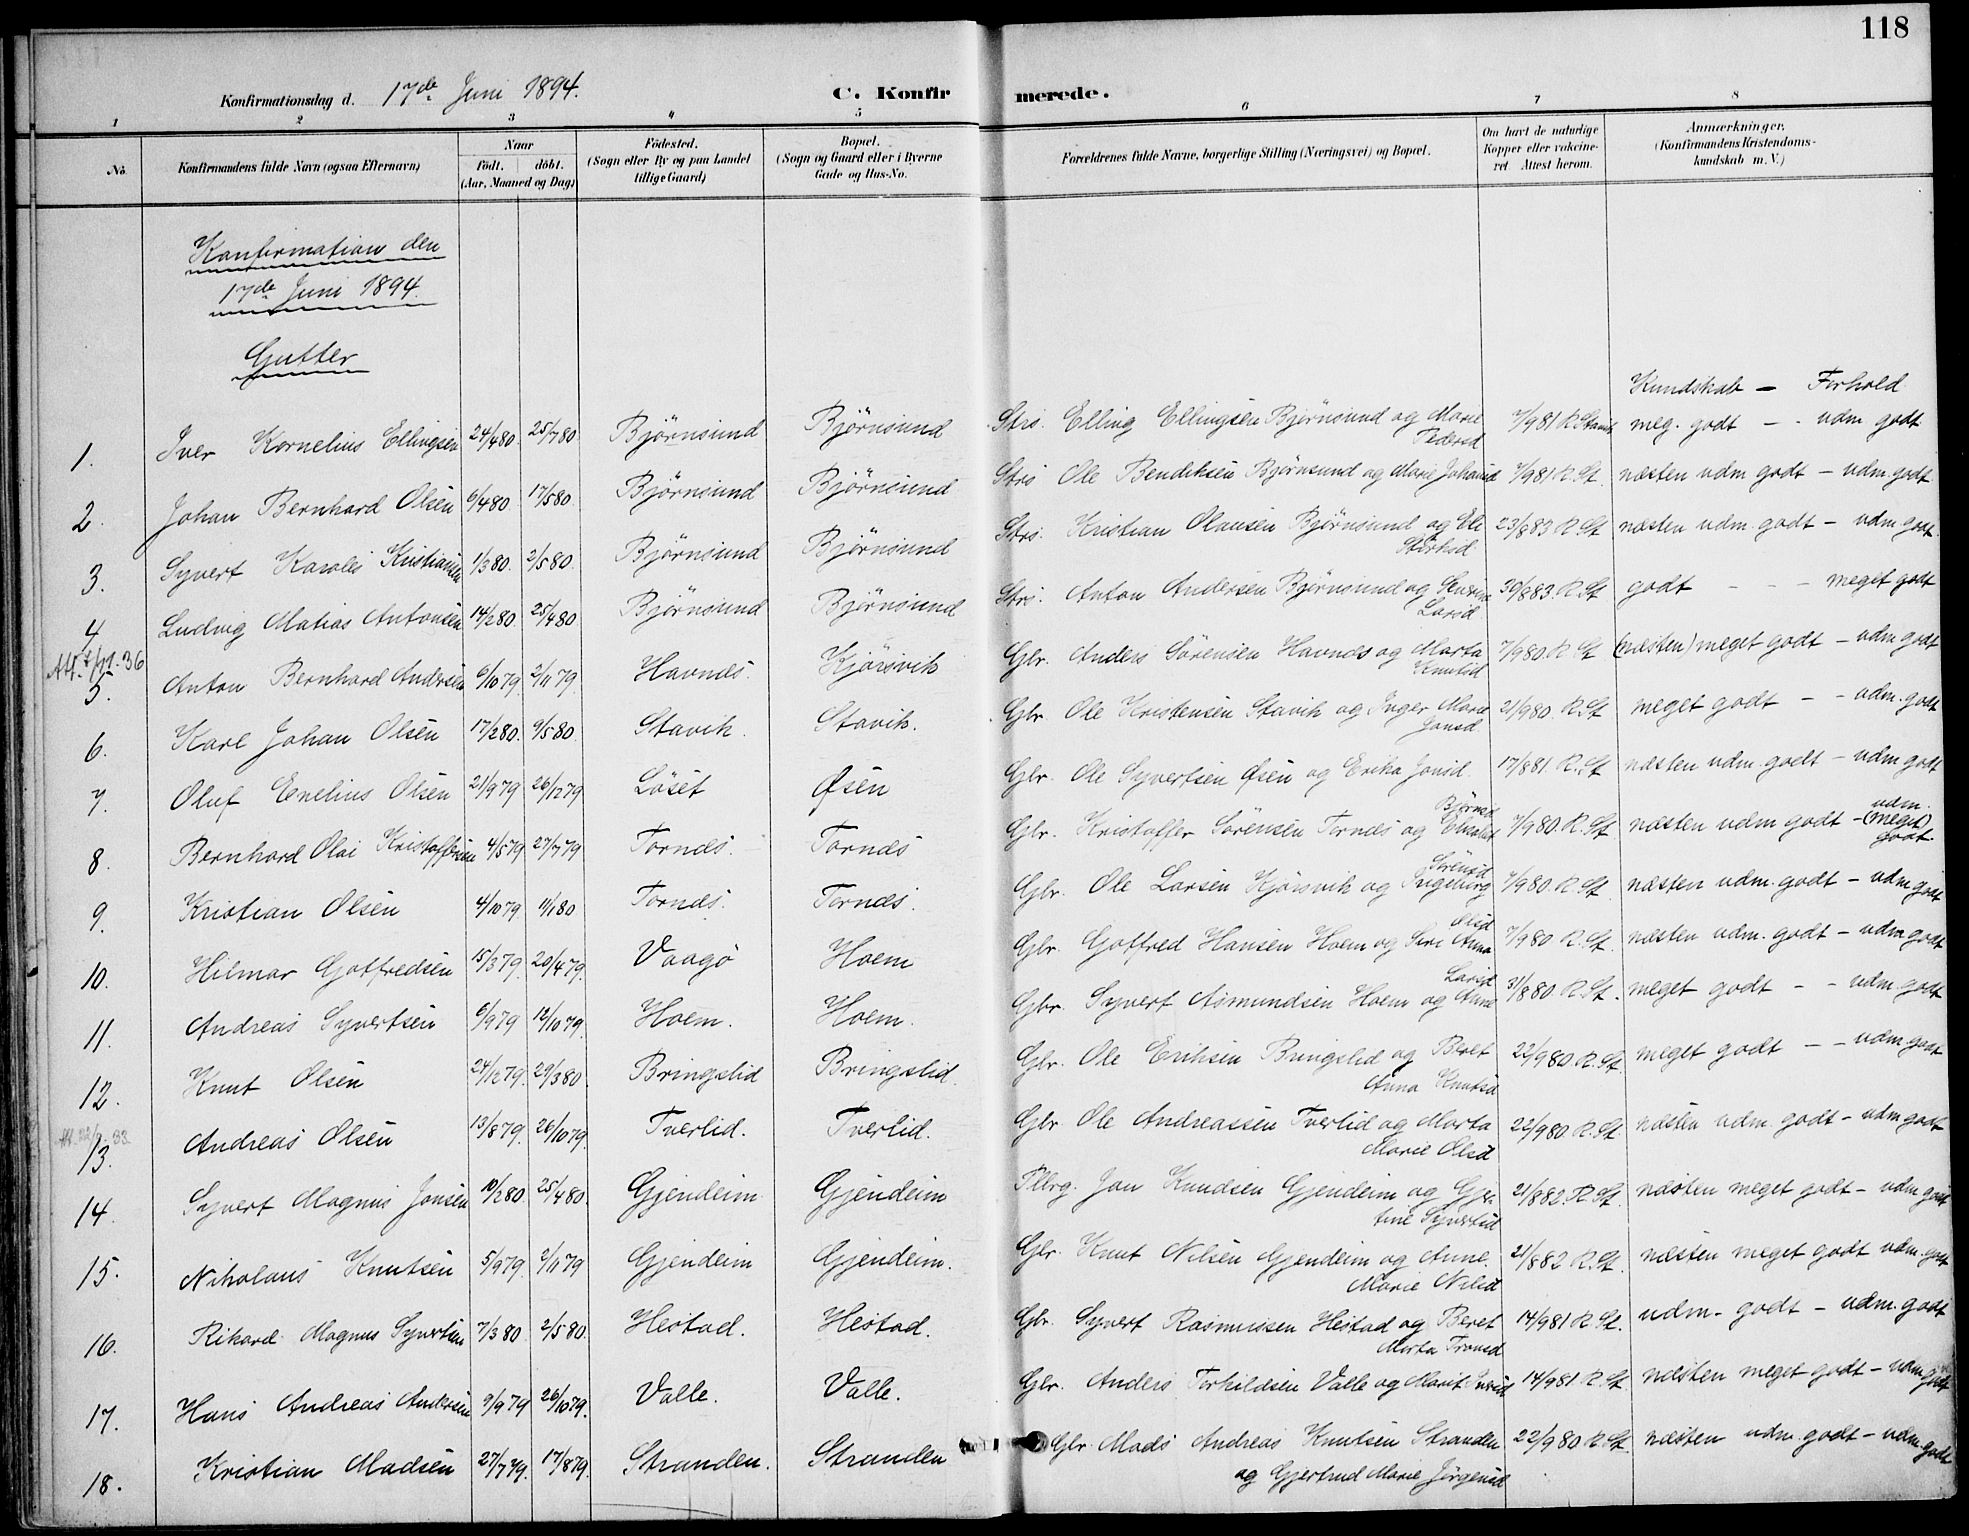 118
Konfirmationsdag d. 17de Juni 1894. C. Konfirmerede.
1 2 3 4 5 6 7 8
No. Konfirmandens fulde Navn (ogsaa Efternavn) Naar født. døbt. (Aar, Maaned og Dag) Fødested. (Sogn eller By og paa Landet tillige Gaard) Bopæl. (Sogn og Gaard eller i Byerne Gade og Hus-No. Forældrenes fulde Navne, borgerlige Stilling (Næringsvei) og Bopæl. Om havt de naturlige Kopper eller vakcineret. Attest herom. Anmærkninger. (Konfirmandens Kristendomskundskab m. V.)
Konfirmation den
17de Juni 1894.
Gutter
Kundskab - Forhold
1. Iver Kornelius Ellingsen 24/4 80. 25/7 80. Bjørnsund Bjørnsund Strs. Elling Ellingsen Bjørnsund og Marie Pedersd 7/9 81 R. meg. godt - udm godt
2. Johan Bernhard Olsen 6/4 80. 17/5 80. Bjørnsund Bjørnsund Strs Ole Bendiksen Bjørnsund og Marie Johansd 7/9 81 R. St. næsten udm godt - udm. godt
3. Syvert Karoles Kristiansen 1/3 80. 2/5 80. Bjørnsund Bjørnsund Strs. Kristian Olausen Bjørnsund og 23/8 83 R. St næsten udm. godt - udm. godt.
4 Ludvig Matias Antonsen 14/2 80. 25/4 80 Bjørnsund Bjørnsund Strs. Anton Andersen Bjørnsund og Larsd 30/8 83. R. St godt - - - meget godt
5. Anton Bernhard Andersen 6/10 79. 2/11 79. Havnes. Kjørsvik Gbr. Anders Sørensen Havnes og Marta Knutsd 7/9 80. R. St (næsten) meget godt - udm godt
6. Karl Johan Olsen 17/2 80. 9/5 80. Stavik. Stavik. Gbr. Ole Kristensen Stavik og Inger Marie Jonsd 21/9 80. R. St meget godt - - udm. godt
7. Oluf Enelius Olsen 21/9 79 26/12 79 Løset Øsen Gbr. Ole Syvertsen Øsen og Erika Jonsd. 17/8 81. R. St næsten udm. godt - udm godt
8. Bernhard Olai Kristoffersen 4/5 79 27/7 79 Tornes. Tornes Gbr. Kristoffer Sørensen Tornes og Elisabet Bjørnsd 7/9 80. R. St. næsten udm godt - udm. (meget) godt.
9. Kristian Olsen 4/10 79 11/1 80 Tornes. Tornes. Gbr. Ole Larsen Kjørsvik og Ingeborg Sørensd 7/9 80. R. St. næsten udm. godt - udm godt
10. Hilmar Gotfredsen 15/3 79. 20/4 79. Vaagø Hoem Gbr. Gotfred Hansen Hoem og Siri Anna Olsd 7/9 80 R. St. næsten udm. godt - udm godt
11. Andreas Syvertsen 6/9 79 12/10 79. Hoem. Hoem. Gbr. Syvert Asmundsen Hoem og Anne Larsd 31/8 80 R. St. meget godt - - udm. godt
12. Knut Olsen 24/12 79. 29/3 80. Bringslid Bringslid. Gbr. Ole Eriksen Bringslid og Beret Anna Knutsd 22/9 80 R. St. meget godt - - udm. godt
13. Andreas Olsen 13/8 79. 26/10 79. Tverlid. Tverlid. Gbr. Ole Andreassen Tverlid og Marta Marie Olsd 22/9 80. R. St. næsten udm. godt - udm godt
14. Syvert Magnus Jonsen 10/2 80. 25/4 80. Gjendeim Gjendeim Jon Knudsen Gjendeim og Gjertine Syvertsd 21/8 82. R. St. næsten meget godt - udm godt
15. Nikolaus Knutsen 5/9 79. 2/11 79 Gjendeim Gjendeim. Gbr. Knut Nilsen Gjendeim og Anne Marie Nilsd 21/8 82 R. St. næsten meget godt udm. godt
16. Rikard Magnus Syvertsen 7/3 80. 2/5 80. Hestad. Hestad. Gbr. Syvert Rasmussen Hestad og Beret Marta Tronsd 14/9 81 R. St. udm. godt - udm. godt
17. Hans Andreas Andersen 9/9 79 26/10 79. Valle. Valle. Gbr. Anders Torkildsen Valle og Marit 14/9 81 R. St. næsten meget godt - udm godt
18. Kristian Madsen 27/7 79. 17/8 79. Stranden. Stranden Gbr. Mads Andreas Knutsen Stranden og Gjertrud Marie Jørgensd 22/9 80 R. St. næsten udm. godt - udm. godt